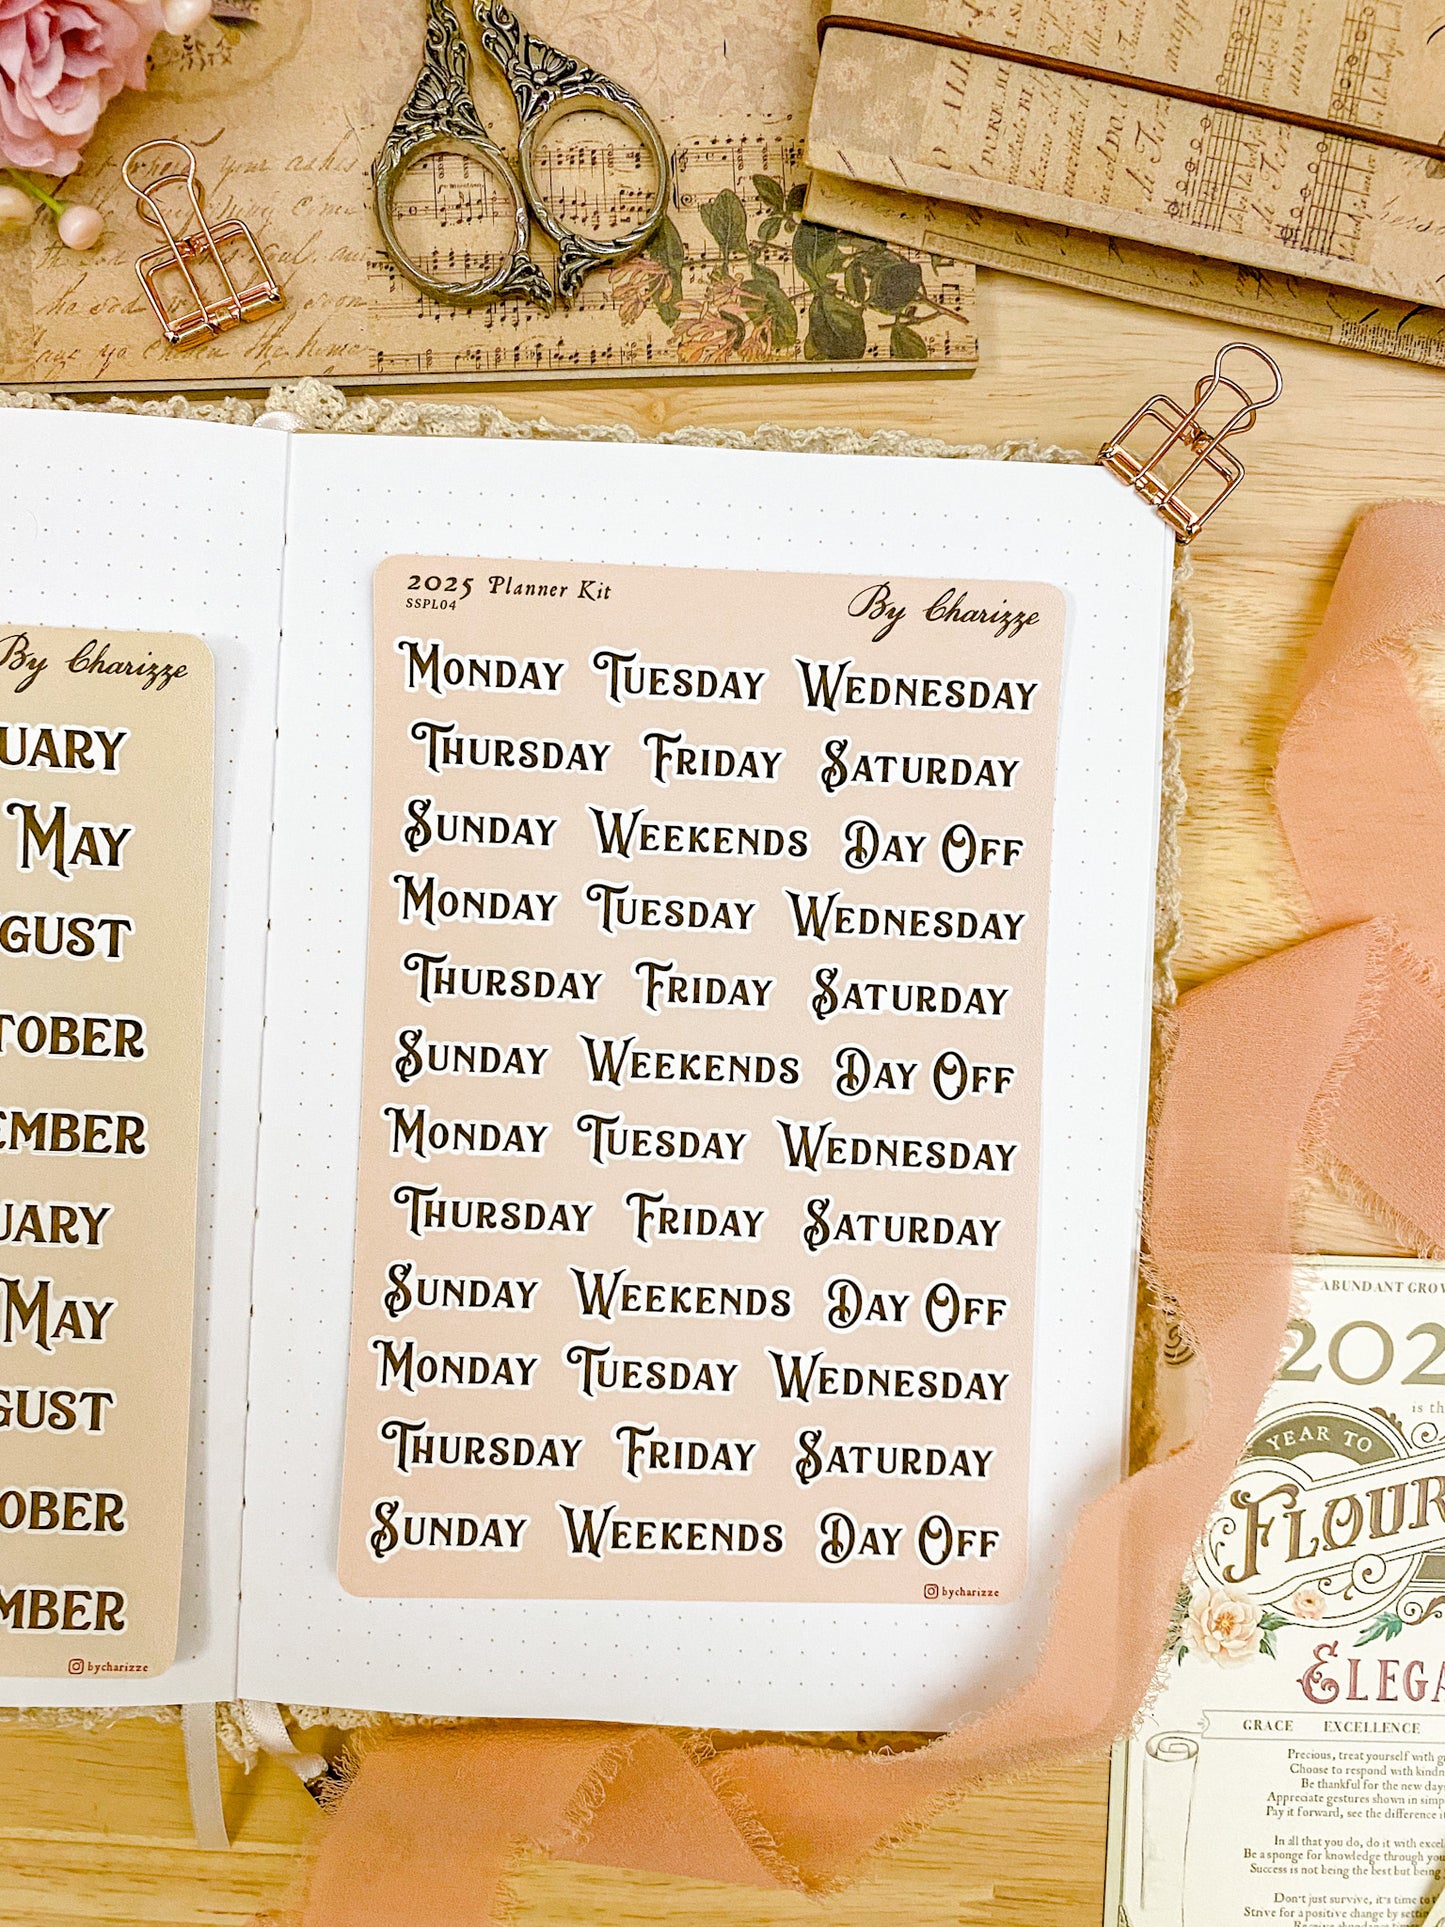 By Charizze
UARY
MAY
GUST
TOBER
EMBER
UARY
MAY
GUST
OBER
MBER
bycharizze
2025 Planner Kit
SSPL04
By Charizze
MONDAY TUESDAY WEDNESDAY
THURSDAY FRIDAY SATURDAY
SUNDAY WEEKENDS DAY OFF
MONDAY TUESDAY WEDNESDAY
THURSDAY FRIDAY SATURDAY
SUNDAY WEEKENDS DAY OFF
MONDAY TUESDAY WEDNESDAY
THURSDAY FRIDAY SATURDAY
SUNDAY WEEKENDS DAY OFF
MONDAY TUESDAY WEDNESDAY
THURSDAY FRIDAY SATURDAY
SUNDAY WEEKENDS DAY OFF
bycharizze
ABUNDANT GROW
202
is th
YEAR TO
FLOUR
ELEGA
GRACE EXCELLENCE
Precious, treat yourself with g
Choose to respond with kindn
Be thankful for the new day
Appreciate gestures shown in simp
Pay it forward, see the difference it
In all that you do, do it with excel
Be a sponge for knowledge through you
Success is not being the best but being
Don't just survive, it's time to t
Strive for a positive change by settin